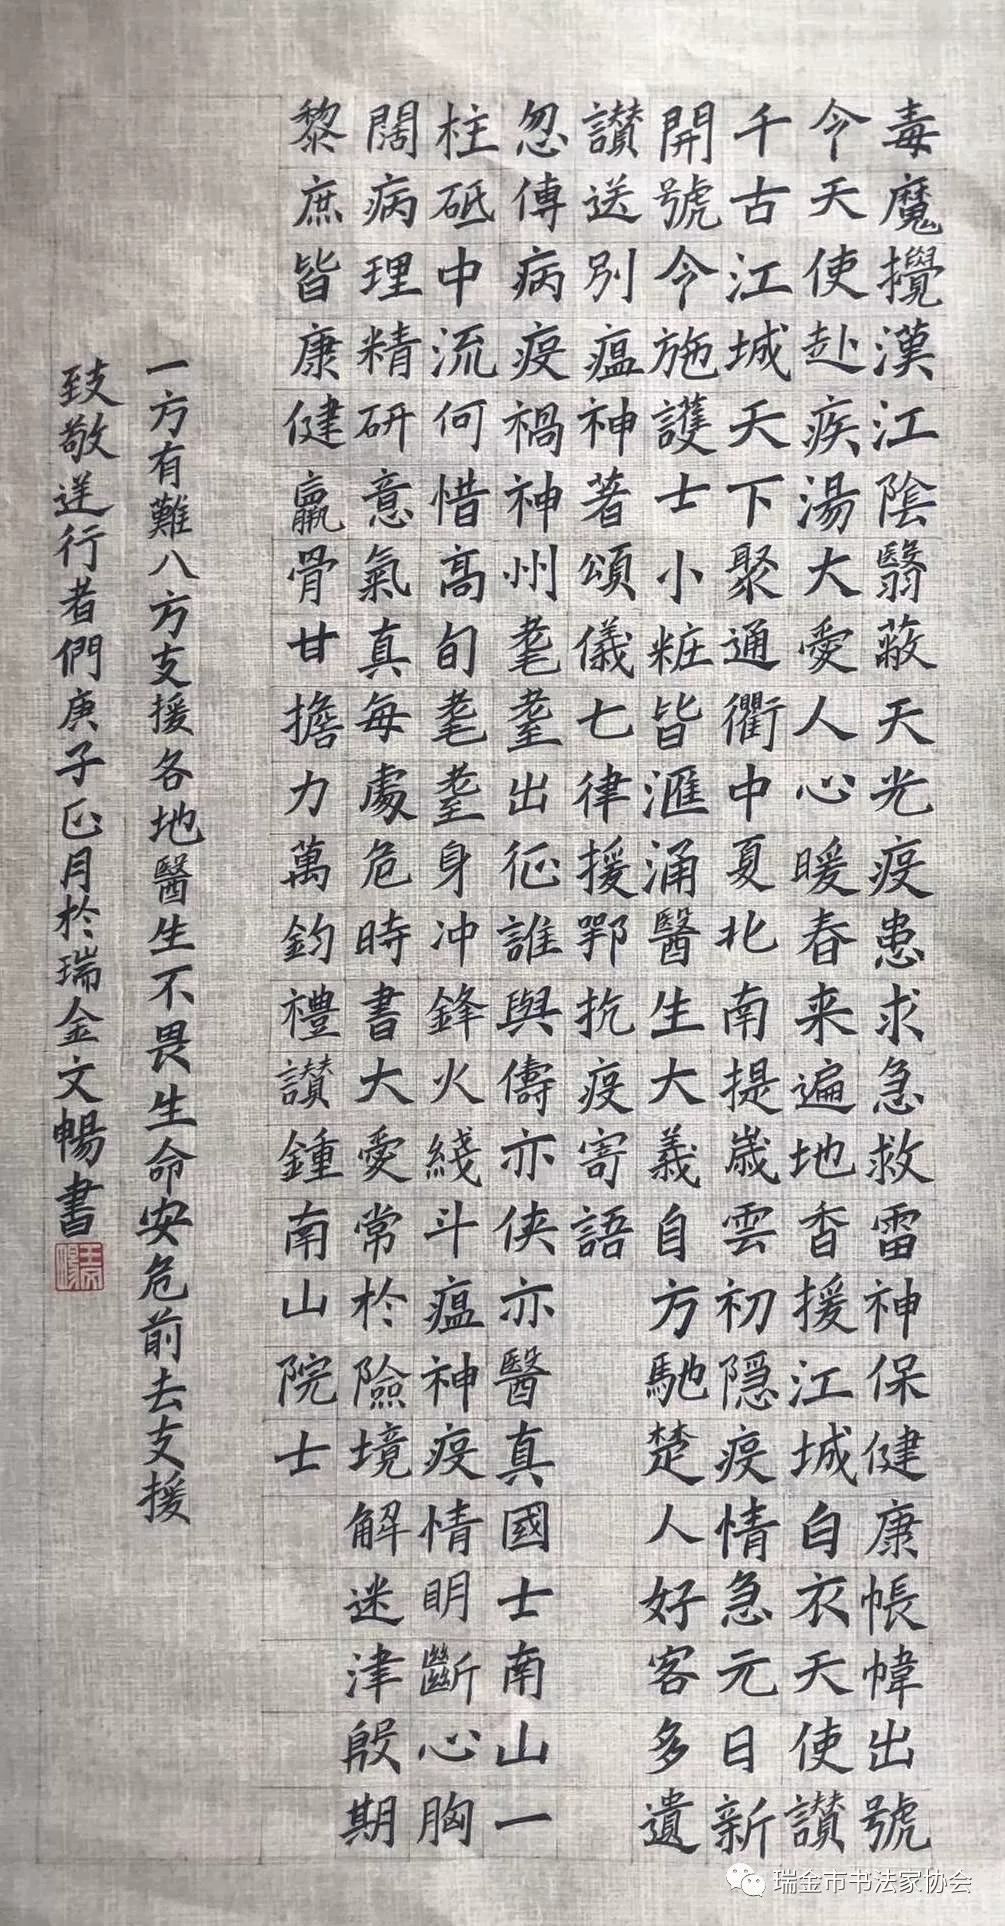 毒魔攪漢江陰翳蔽天光疫患求急救雷神保健康帳幃出號
令天使赴疾湯大愛人心暖春来遍地香援江城白衣天使讚
千古江城天下聚通衢中夏北南提歲雲初隱疫情急元日新
開號令施護士小粧皆滙涌醫生大義自方馳楚人好客多遺
讚送別瘟神著頌儀七律援鄂抗疫寄語
忽傳病疫禍神州耄耋出征誰與儔亦俠亦醫真國士南山一
柱砥中流何惜高旬耄耋身冲鋒火綫斗瘟神疫情明斷心胸
闊病理精研意氣真每處危時書大愛常於險境解迷津殷期
黎庶皆康健羸骨甘擔力萬鈞禮讚鍾南山院士
一方有難八方支援各地醫生不畏生命安危前去支援
致敬逆行者們庚子正月於瑞金文暢書
瑞金市书法家协会